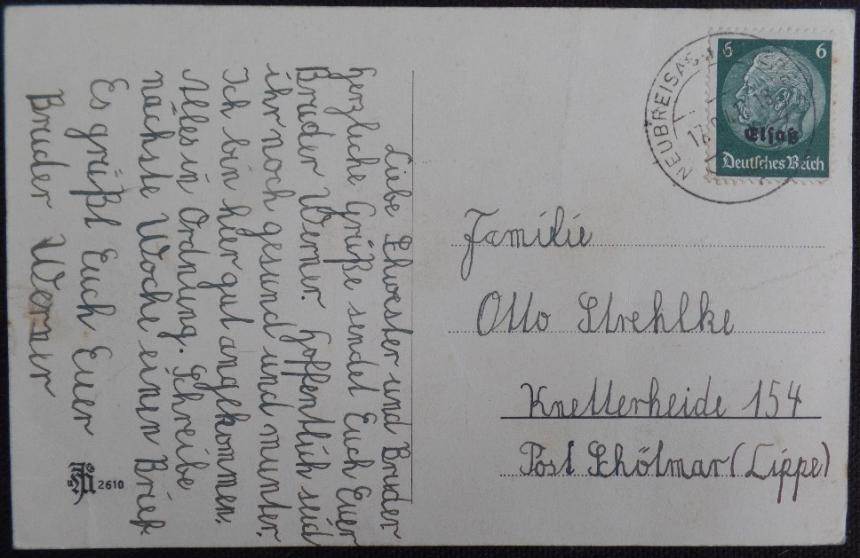 Liebe Schwester und Bruder
herzliche Grüße sendet Euch Euer
Bruder Werner. Hoffentlich seid
ihr noch gesund und munter.
Ich bin hier gut angekommen.
Alles in Ordnung. Schreibe
nächste Woche einen Brief
Es grüßt Euch Euer
Bruder Werner
2610
NEUBREISACH
6 6
Elsaß
Deutsches Reich
Familie
Otto Strehlke
Knetterheide 154
Post Schötmar (Lippe)